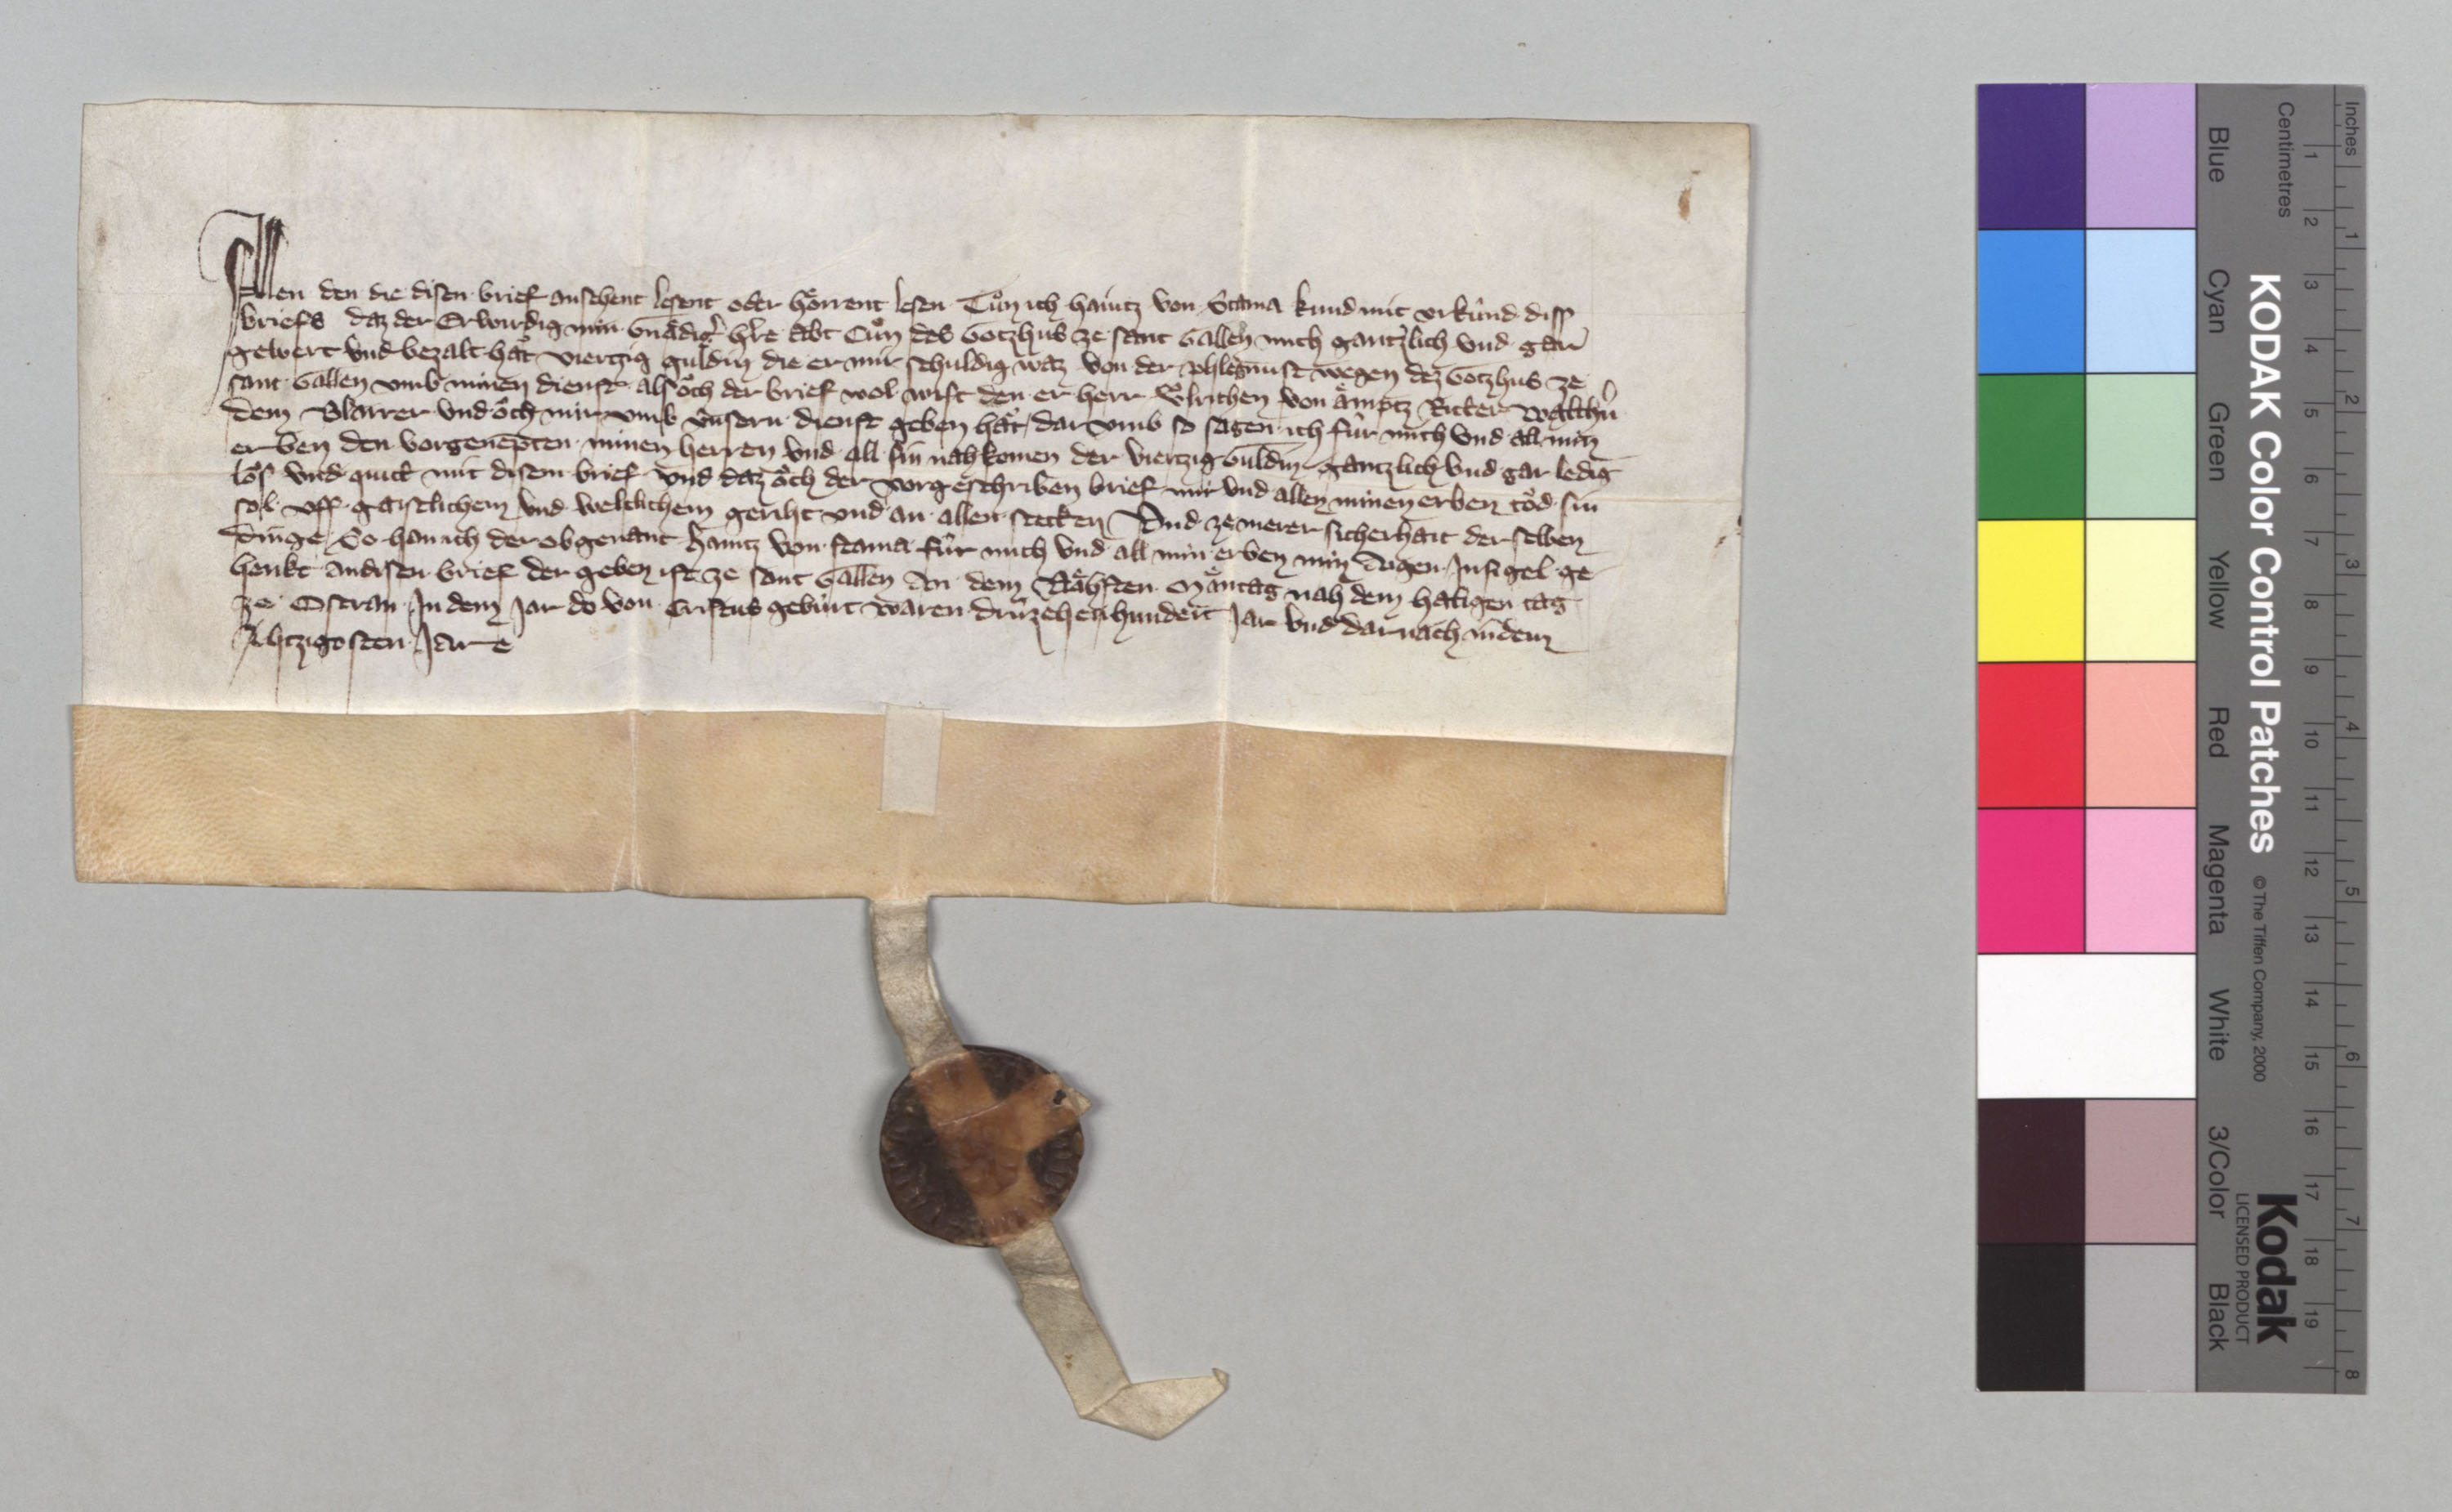 Allen den die disen brief ansehent lesent oder hoͤrrent lesen Tuͦn ich haintz von Stama kund mit vrkúnd diss
briefs daz der Erwirdig min Gnaͤdig hͬre Abt Cuͦn des Gotzhus ze sant Gallen mich gantzlich vnd gar
gewert vnd bezalt haͤt viertzig guldin die er mir schuldig waz von der phlegnust wegen dez Gotzhus ze
sant Gallen vmb minen dienst als oͮch der brief wol wist den er herr Uͦlrichen von aͤmptz Ritter
dem Blarrer vnd oͮch mir vmb únsern dienst geben haͤt dar vmb so sagen ich fúr mich vnd all min
erben den vorgenepten minen herren vnd all sin nahkomen der viertzig Guldin gantzlich vnd gar ledig
loͤs vnd quitt mit disem brief vnd daz oͮch der vorgeschriben brief mir vnd allen minen erben toͮd sin
sol vff gaistlichem vnd weltlichem geriht vnd an allen stetten Vnd ze merer sicherhait der selben
dinge So han ich der obgenant haintz von stama fúr mich vnd all min erben min aigen Insigel ge
henkt an disen brief der geben ist ze sant Gallen An dem Naͤhsten Maͤntag nah dem hailigen tag
ze Ostran In dem Jar do von Cristus geburt waren drúzehenhundert Jar vnd darnach in dem
Ahtzigosten Jare
KODAK Color Control Patches
© The Tiffen Company, 2000
Kodak
LICENSED PRODUCT
Inches 1 2 3 4 5 6 7 8
Centimetres 1 2 3 4 5 6 7 8 9 10 11 12 13 14 15 16 17 18 19
Blue Cyan Green Yellow Red Magenta White 3/Color Black